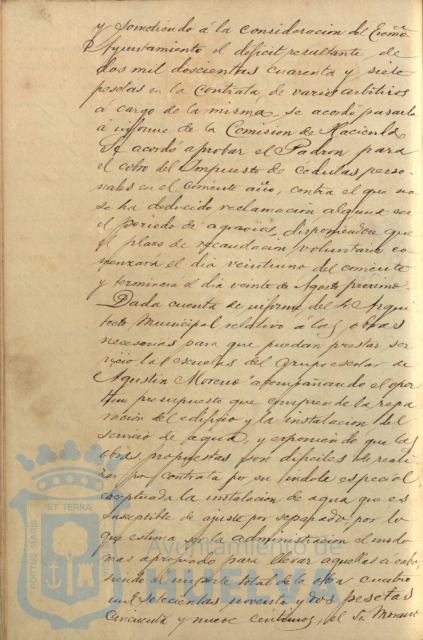 y sometiendo á la consideracion del Excmo.
Ayuntamiento el déficit resultante de
dos mil doscientas cuarenta y siete
pesetas en la contrata de varios arbitrios
á cargo de la misma, se acordó pasarla
á informe de la Comision de Hacienda
Se acordó aprobar el Padron para
el cobro del Impuesto de cédulas perso-
nales en el corriente año, contra el que no
se ha deducido reclamacion alguna en
el periodo de agravios, disponiendo que
el plazo de recaudacion voluntaria co-
menzará el dia veintiuno del corriente
y terminará el dia veinte de Agosto próximo.
Dada cuenta de informe del Sr. Arqui-
tecto Municipal relativo á las obras
necesarias para que puedan prestar ser-
vicio las escuelas del Grupo escolar de
"Agustin Moreno" acompañando el opor-
tuno presupuesto que comprende la repa-
racion del edificio y la instalacion del
servicio de agua, y exponiendo que las
obras propuestas son dificiles de reali-
zar por contrata por su indole especial
exceptuada la instalacion de agua que es
susceptible de ajuste por separado, por lo
que estima ser la administracion el modo
mas apropiado para llevar aquellas á cabo,
siendo el importe total de la obra cuatro
mil setecientas noventa y dos pesetas
cincuenta y nueve centimos, el Sr. Moreno
PORTUS MARIS ET TERRAE
Ayuntamiento de